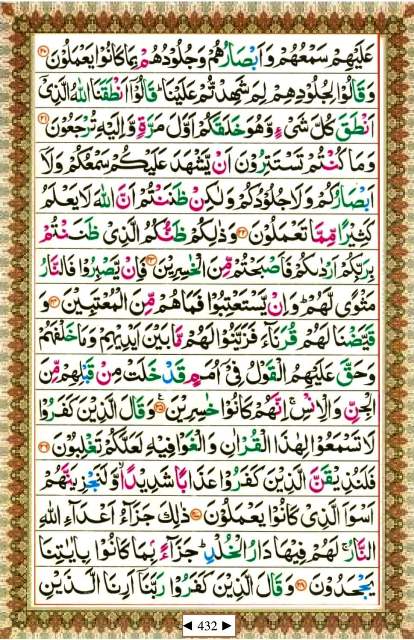 عَلَيْهِمْ سَمْعُهُمْ وَاَبْصَارُهُمْ وَجُلُوْدُهُمْ بِمَا كَانُوْا يَعْمَلُوْنَ ﴿۲۰﴾
وَقَالُوْا لِجُلُوْدِهِمْ لِمَ شَهِدْتُّمْ عَلَيْنَا ؕ قَالُوْۤا اَنْطَقَنَا اللّٰهُ الَّذِيْۤ
اَنْطَقَ كُلَّ شَيْءٍ وَّهُوَ خَلَقَكُمْ اَوَّلَ مَرَّةٍ وَّاِلَيْهِ تُرْجَعُوْنَ ﴿۲۱﴾
وَمَا كُنْتُمْ تَسْتَتِرُوْنَ اَنْ يَّشْهَدَ عَلَيْكُمْ سَمْعُكُمْ وَلَاۤ
اَبْصَارُكُمْ وَلَا جُلُوْدُكُمْ وَلٰكِنْ ظَنَنْتُمْ اَنَّ اللّٰهَ لَا يَعْلَمُ
كَثِيْرًا مِّمَّا تَعْمَلُوْنَ ﴿۲۲﴾ وَذٰلِكُمْ ظَنُّكُمُ الَّذِيْ ظَنَنْتُمْ
بِرَبِّكُمْ اَرْدٰىكُمْ فَاَصْبَحْتُمْ مِّنَ الْخٰسِرِيْنَ ﴿۲۳﴾ فَاِنْ يَّصْبِرُوْا فَالنَّارُ
مَثْوًى لَّهُمْ ؕ وَاِنْ يَّسْتَعْتِبُوْا فَمَا هُمْ مِّنَ الْمُعْتَبِيْنَ ﴿۲۴﴾ وَ
قَيَّضْنَا لَهُمْ قُرَنَآءَ فَزَيَّنُوْا لَهُمْ مَّا بَيْنَ اَيْدِيْهِمْ وَمَا خَلْفَهُمْ
وَحَقَّ عَلَيْهِمُ الْقَوْلُ فِيْۤ اُمَمٍ قَدْ خَلَتْ مِنْ قَبْلِهِمْ مِّنَ
الْجِنِّ وَالْاِنْسِ ۚ اِنَّهُمْ كَانُوْا خٰسِرِيْنَ ﴿۲۵﴾ وَقَالَ الَّذِيْنَ كَفَرُوْا
لَا تَسْمَعُوْا لِهٰذَا الْقُرْاٰنِ وَالْغَوْا فِيْهِ لَعَلَّكُمْ تَغْلِبُوْنَ ﴿۲۶﴾
فَلَنُذِيْقَنَّ الَّذِيْنَ كَفَرُوْا عَذَابًا شَدِيْدًا ۙ وَّلَنَجْزِيَنَّهُمْ
اَسْوَاَ الَّذِيْ كَانُوْا يَعْمَلُوْنَ ﴿۲۷﴾ ذٰلِكَ جَزَآءُ اَعْدَآءِ اللّٰهِ
النَّارُ ۚ لَهُمْ فِيْهَا دَارُ الْخُلْدِ ؕ جَزَآءًۢ بِمَا كَانُوْا بِاٰيٰتِنَا
يَجْحَدُوْنَ ﴿۲۸﴾ وَقَالَ الَّذِيْنَ كَفَرُوْا رَبَّنَاۤ اَرِنَا الَّذَيْنِ
◄ 432 ►